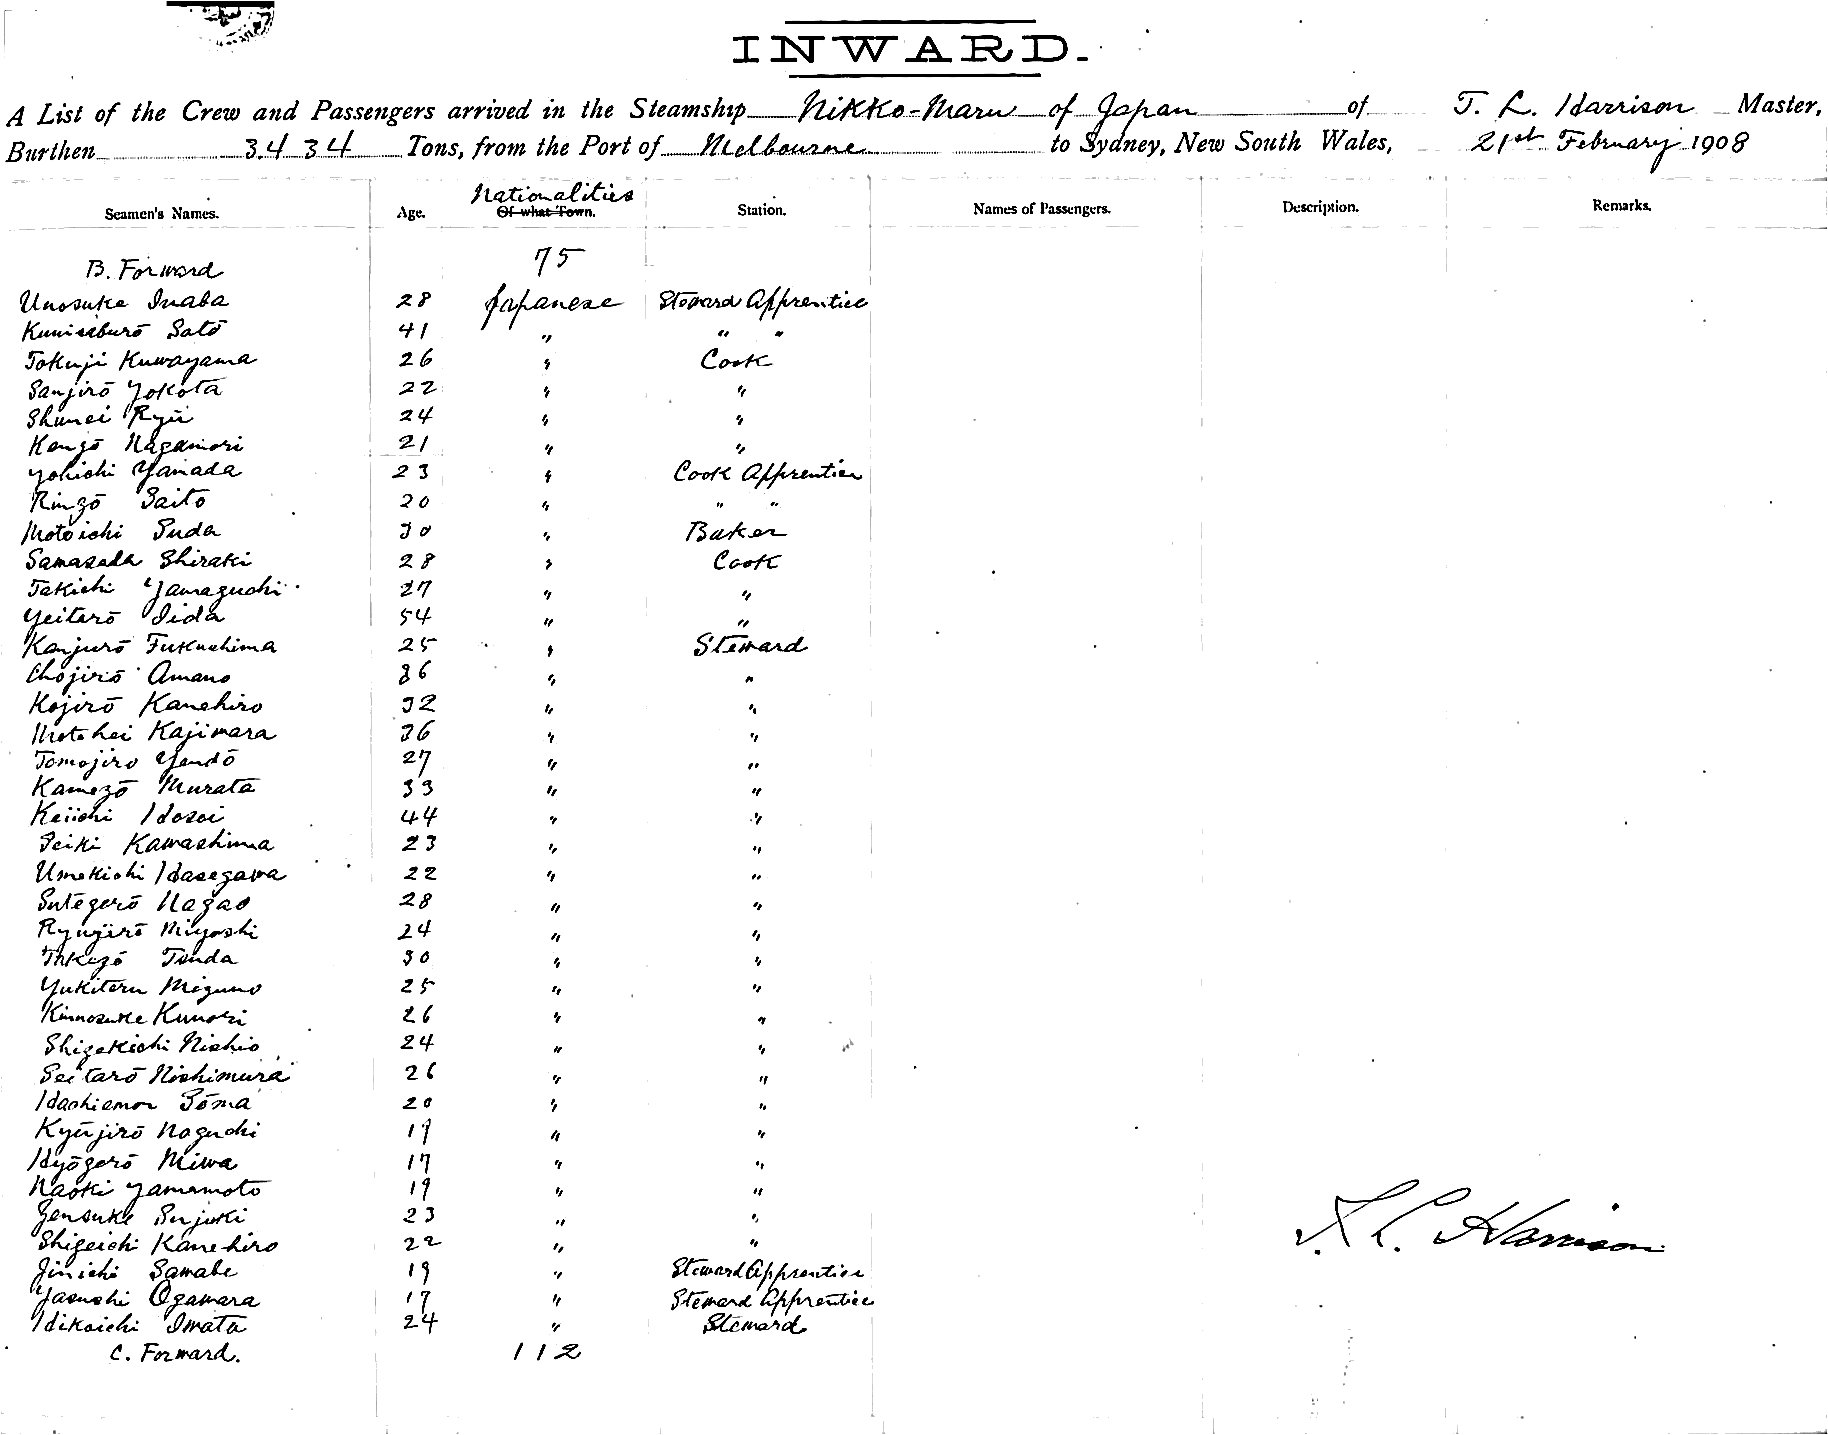 INWARD.
A List of the Crew and Passengers arrived in the Steamship Nikko-Maru of Japan of T. L. Harrison Master,
Burthen 3434 Tons, from the Port of Melbourne to Sydney, New South Wales, 21st February 1908
Nationalities
Seamen's Names. Age. Of what Town. Station. Names of Passengers. Description. Remarks.
B. Forward 75
Unosuke Inaba 28 Japanese Steward Apprentice
Kunisaburō Satō 41 " " "
Tokuji Kuwayama 26 " Cook
Sanjirō Yokota 22 " "
Shunei Ryū 24 " "
Kengō Nagamori 21 " "
Yohichi Yamada 23 " Cook Apprentice
Rinzō Saito 20 " " "
Motoichi Suda 30 " Baker
Samasada Shiraki 28 " Cook
Takichi Yamaguchi 27 " "
Yeitarō Iida 54 " "
Kanjurō Fukushima 25 " Steward
Chōjirō Amano 36 " "
Kojirō Kanehiro 32 " "
Motohei Kajiwara 36 " "
Tomojiro Yendō 27 " "
Kamezō Murata 33 " "
Keiichi Hosoi 44 " "
Seiki Kawashima 23 " "
Umekichi Hasegawa 22 " "
Sutegorō Nagao 28 " "
Ryujirō Miyoshi 24 " "
Takezō Tsuda 30 " "
Yukiteru Mizuno 25 " "
Kinnosuke Kunori 26 " "
Shigekichi Nishio 24 " "
Seitarō Nishimura 26 " "
Hachiemon Sōma 20 " "
Kyūjirō Noguchi 19 " "
Hyōgorō Miwa 17 " "
Naoki Yamamoto 19 " "
Zensuke Sujuki 23 " "
Shigeichi Kanehiro 22 " "
Jinichi Sawabe 19 " Steward Apprentice
Yasushi Ogawara 17 " Steward Apprentice
Hikoichi Iwata 24 " Steward
C. Forward. 112
T. L. Harrison